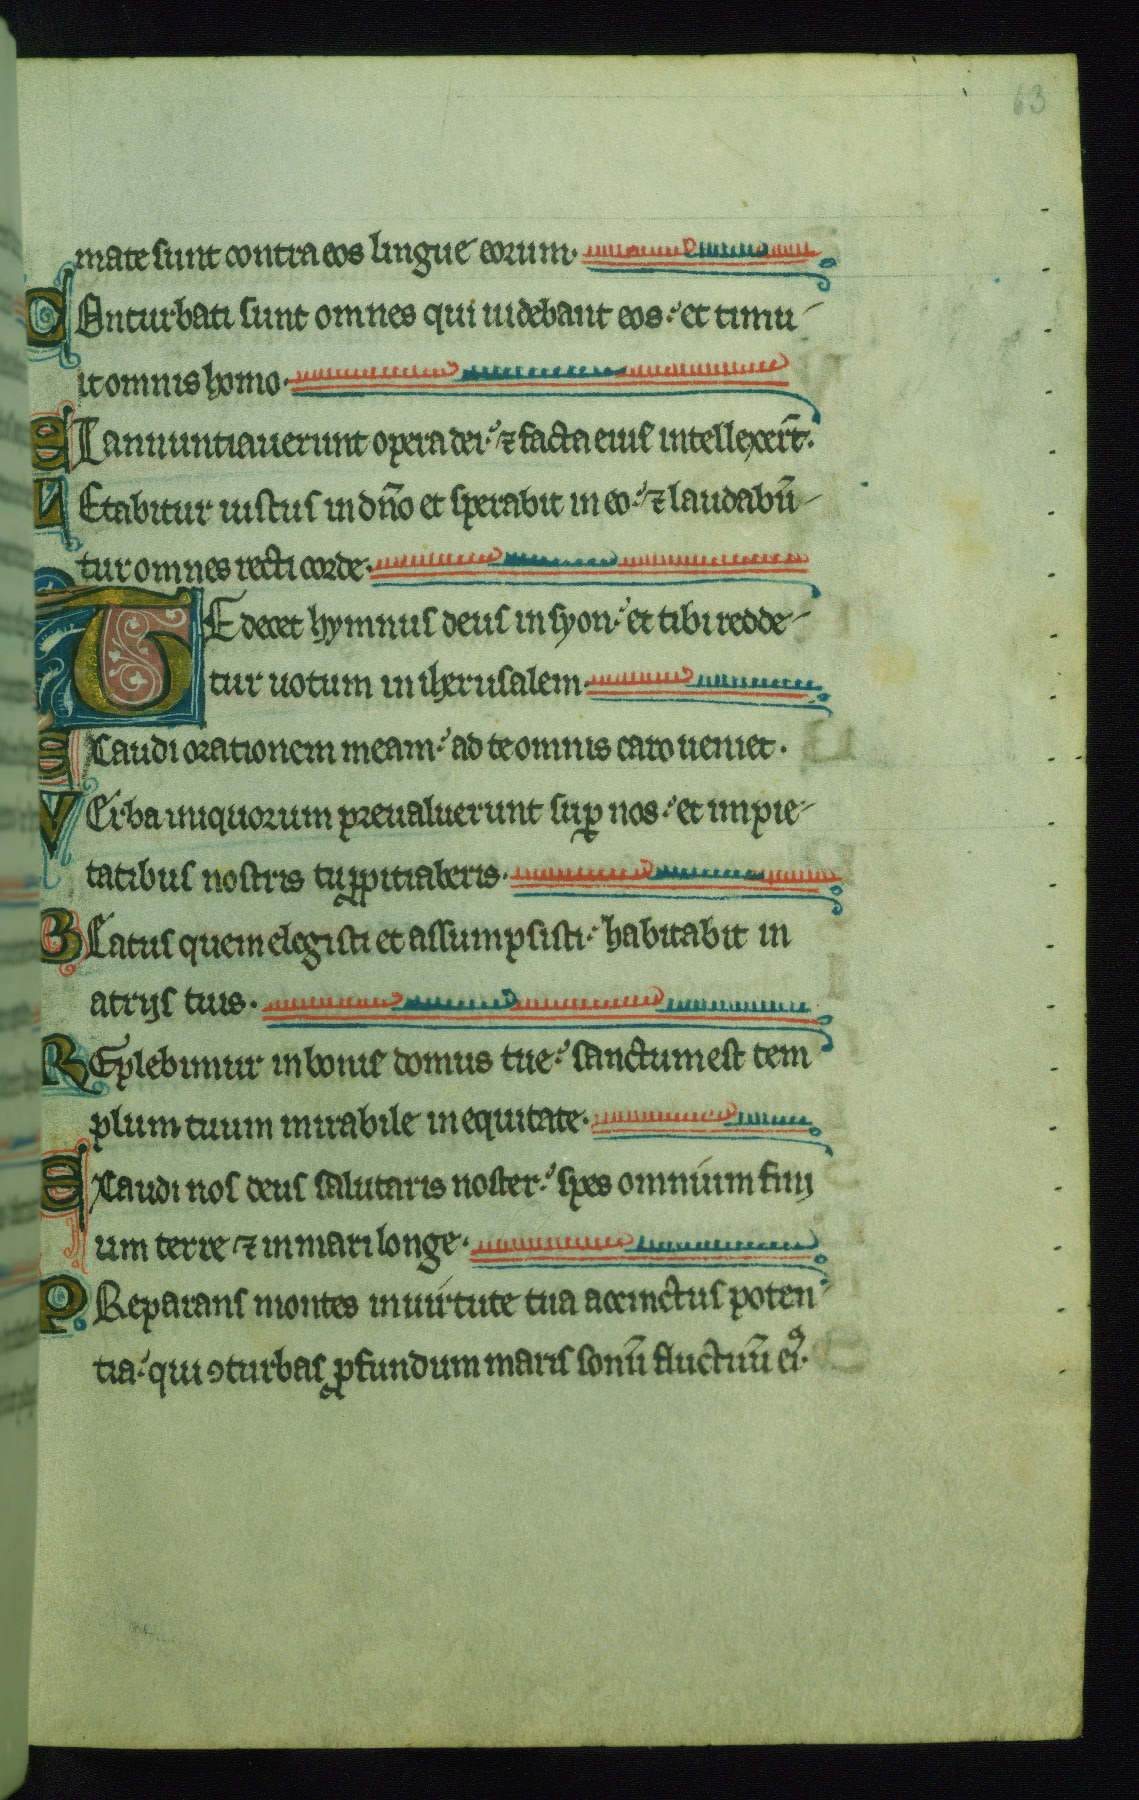 63
mate sunt contra eos lingue eorum.
COnturbati sunt omnes qui uidebant eos: et timu
it omnis homo.
ET annuntiauerunt opera dei: ⁊ facta eius intellexert̄.
LEtabitur iustus in dño et sperabit in eo: ⁊ laudabū
tur omnes recti corde.
TE decet hymnus deus in syon: et tibi redde
tur uotum in iherusalem.
EXaudi orationem meam: ad te omnis caro ueniet.
VErba iniquorum preualuerunt suꝑ nos: et impie
tatibus nostris tu ꝓpitiaberis.
BEatus quem elegisti et assumpsisti: habitabit in
atrijs tuis.
REplebimur in bonis domus tue: sanctum est tem
plum tuum mirabile in equitate.
EXaudi nos deus salutaris noster: spes omnium finij
um terre ⁊ in mari longe.
PReparans montes in uirtute tua accinctus poten
tia: qui ꝯturbas ꝓfundum maris sonū fluctuū eiꝰ.